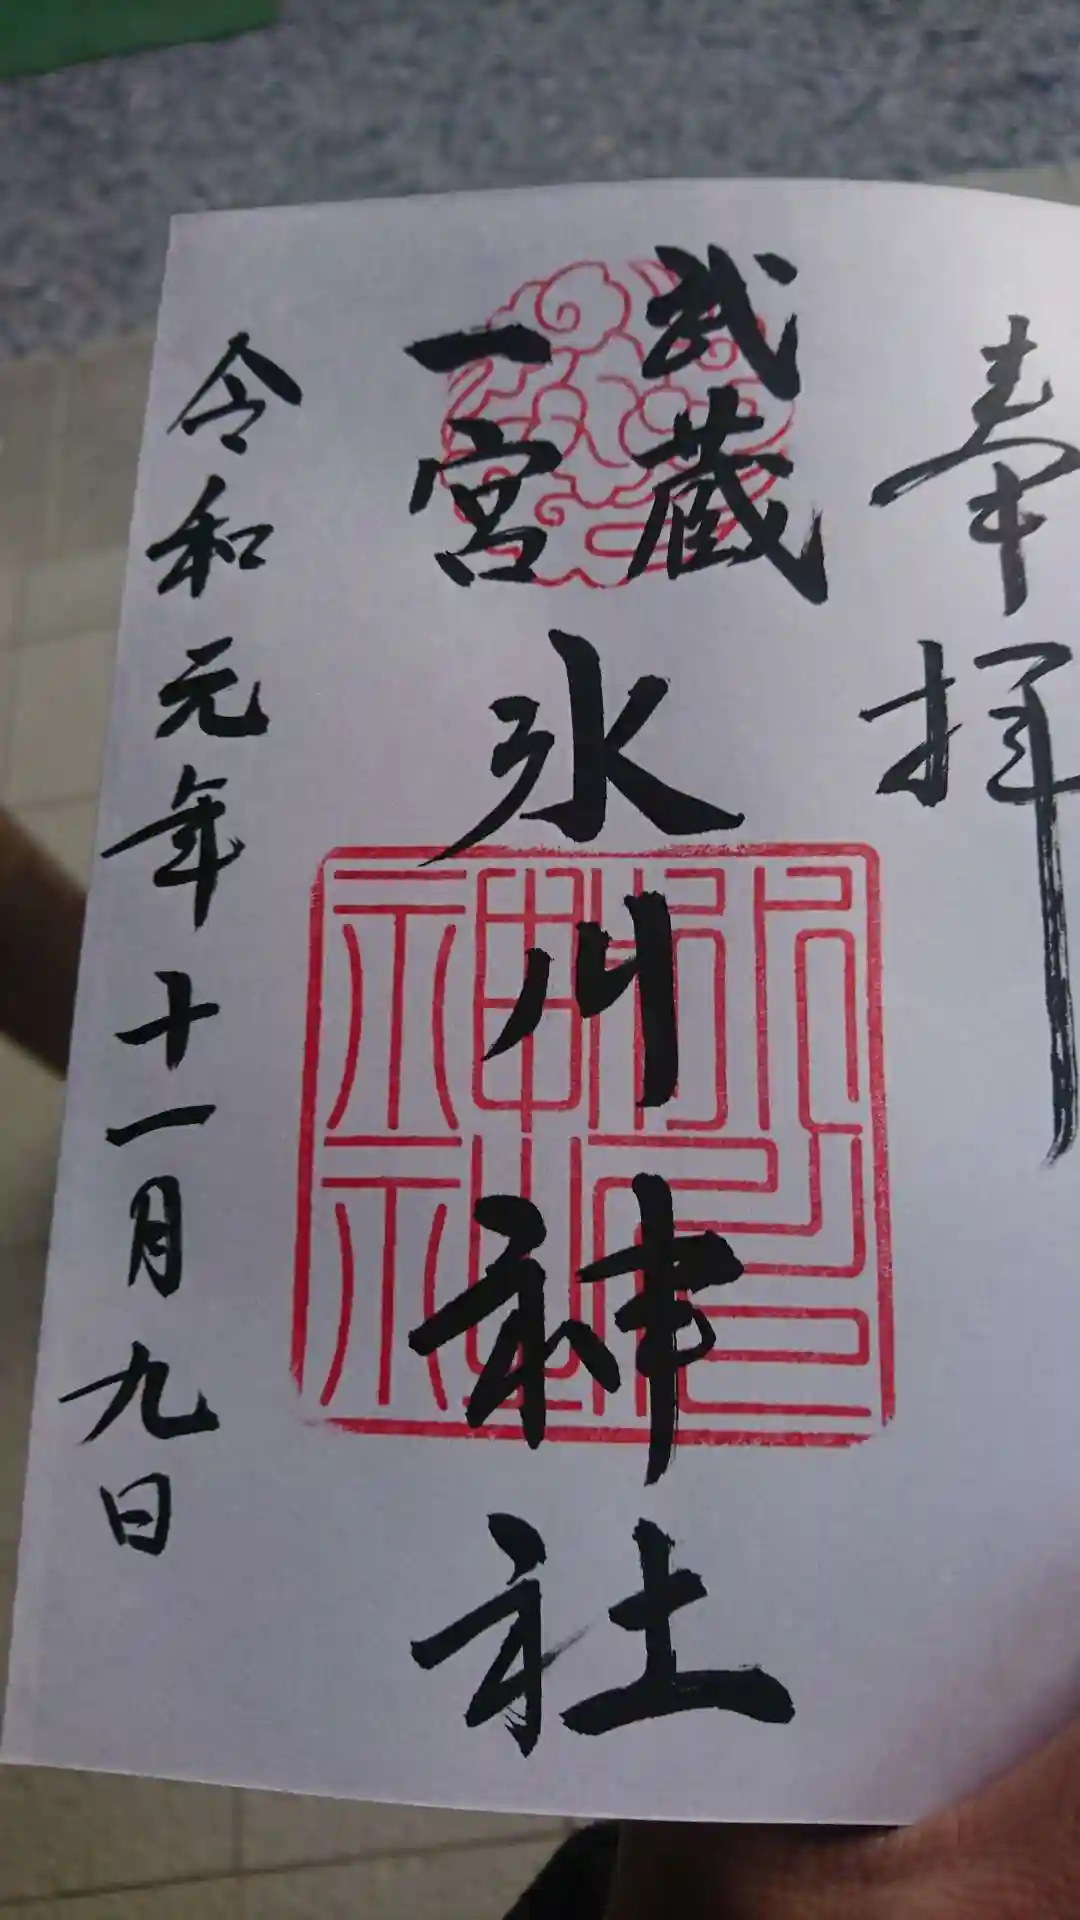 奉拝
武蔵
一宮
氷川神社
令和元年十一月九日